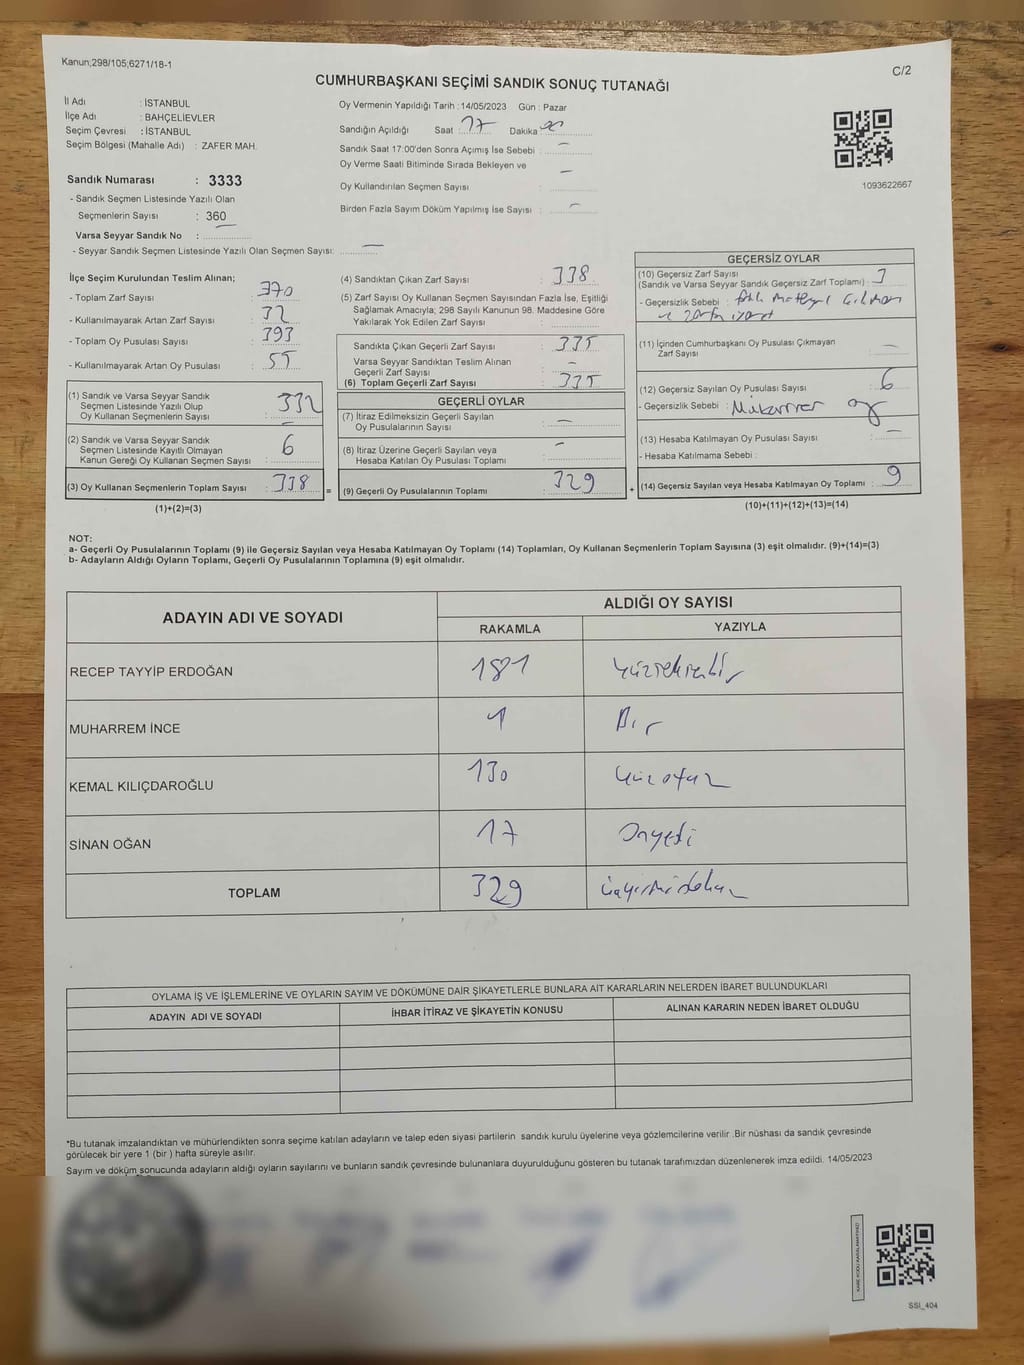 Kanun;298/105;6271/18-1
C/2
CUMHURBAŞKANI SEÇİMİ SANDIK SONUÇ TUTANAĞI
İl Adı : İSTANBUL
İlçe Adı : BAHÇELİEVLER
Seçim Çevresi : İSTANBUL
Seçim Bölgesi (Mahalle Adı) : ZAFER MAH.
Oy Vermenin Yapıldığı Tarih : 14/05/2023 Gün : Pazar
Sandığın Açıldığı Saat : 17 Dakika
Sandık Saat 17:00'den Sonra Açımış İse Sebebi : —
Oy Verme Saati Bitiminde Sırada Bekleyen ve —
Oy Kullandırılan Seçmen Sayısı :
Birden Fazla Sayım Döküm Yapılmış İse Sayısı : —
1093622667
Sandık Numarası : 3333
- Sandık Seçmen Listesinde Yazılı Olan
Seçmenlerin Sayısı : 360
Varsa Seyyar Sandık No :
- Seyyar Sandık Seçmen Listesinde Yazılı Olan Seçmen Sayısı: —
İlçe Seçim Kurulundan Teslim Alınan;
- Toplam Zarf Sayısı : 370
- Kullanılmayarak Artan Zarf Sayısı : 32
- Toplam Oy Pusulası Sayısı : 393
- Kullanılmayarak Artan Oy Pusulası : 55
(1) Sandık ve Varsa Seyyar Sandık
Seçmen Listesinde Yazılı Olup
Oy Kullanan Seçmenlerin Sayısı : 332
(2) Sandık ve Varsa Seyyar Sandık
Seçmen Listesinde Kayıtlı Olmayan
Kanun Gereği Oy Kullanan Seçmen Sayısı : 6
(3) Oy Kullanan Seçmenlerin Toplam Sayısı : 338
(1)+(2)=(3)
(4) Sandıktan Çıkan Zarf Sayısı : 338
(5) Zarf Sayısı Oy Kullanan Seçmen Sayısından Fazla İse, Eşitliği
Sağlamak Amacıyla; 298 Sayılı Kanunun 98. Maddesine Göre
Yakılarak Yok Edilen Zarf Sayısı :
Sandıkta Çıkan Geçerli Zarf Sayısı : 335
Varsa Seyyar Sandıktan Teslim Alınan
Geçerli Zarf Sayısı : —
(6) Toplam Geçerli Zarf Sayısı : 335
GEÇERLİ OYLAR
(7) İtiraz Edilmeksizin Geçerli Sayılan
Oy Pusulalarının Sayısı : —
(8) İtiraz Üzerine Geçerli Sayılan veya
Hesaba Katılan Oy Pusulası Toplamı : —
= (9) Geçerli Oy Pusulalarının Toplamı : 329
GEÇERSİZ OYLAR
(10) Geçersiz Zarf Sayısı
(Sandık ve Varsa Seyyar Sandık Geçersiz Zarf Toplamı) : 3
- Geçersizlik Sebebi :
(11) İçinden Cumhurbaşkanı Oy Pusulası Çıkmayan
Zarf Sayısı : —
(12) Geçersiz Sayılan Oy Pusulası Sayısı : 6
- Geçersizlik Sebebi : Mükerrer oy
(13) Hesaba Katılmayan Oy Pusulası Sayısı : —
- Hesaba Katılmama Sebebi :
+ (14) Geçersiz Sayılan veya Hesaba Katılmayan Oy Toplamı : 9
(10)+(11)+(12)+(13)=(14)
NOT:
a- Geçerli Oy Pusulalarının Toplamı (9) ile Geçersiz Sayılan veya Hesaba Katılmayan Oy Toplamı (14) Toplamları, Oy Kullanan Seçmenlerin Toplam Sayısına (3) eşit olmalıdır. (9)+(14)=(3)
b- Adayların Aldığı Oyların Toplamı, Geçerli Oy Pusulalarının Toplamına (9) eşit olmalıdır.
ADAYIN ADI VE SOYADI
ALDIĞI OY SAYISI
RAKAMLA YAZIYLA
RECEP TAYYİP ERDOĞAN 181 Yüzseksenbir
MUHARREM İNCE 1 Bir
KEMAL KILIÇDAROĞLU 130 Yüzotuz
SİNAN OĞAN 17 Onyedi
TOPLAM 329 Üçyüzyirmidokuz
OYLAMA İŞ VE İŞLEMLERİNE VE OYLARIN SAYIM VE DÖKÜMÜNE DAİR ŞİKAYETLERLE BUNLARA AİT KARARLARIN NELERDEN İBARET BULUNDUKLARI
ADAYIN ADI VE SOYADI İHBAR İTİRAZ VE ŞİKAYETİN KONUSU ALINAN KARARIN NEDEN İBARET OLDUĞU
*Bu tutanak imzalandıktan ve mühürlendikten sonra seçime katılan adayların ve talep eden siyasi partilerin sandık kurulu üyelerine veya gözlemcilerine verilir .Bir nüshası da sandık çevresinde
görülecek bir yere 1 (bir ) hafta süreyle asılır.
Sayım ve döküm sonucunda adayların aldığı oyların sayılarını ve bunların sandık çevresinde bulunanlara duyurulduğunu gösteren bu tutanak tarafımızdan düzenlenerek imza edildi. 14/05/2023
KARE KODU KARALAMAYINIZ!
SSI_404